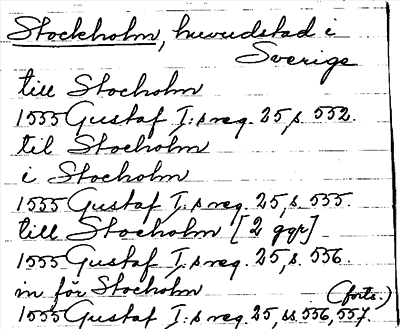 Stockholm, huvudstad i
Sverige
till Stocholm
1555 Gustaf I:s reg. 25, s. 552.
til Stocholm
i Stocholm
1555 Gustaf I:s reg. 25, s. 555.
till Stocholm [2 ggr]
1555 Gustaf I:s reg. 25, s. 556
in för Stocholm
(forts.)
1555 Gustaf I:s reg. 25, ss. 556, 557